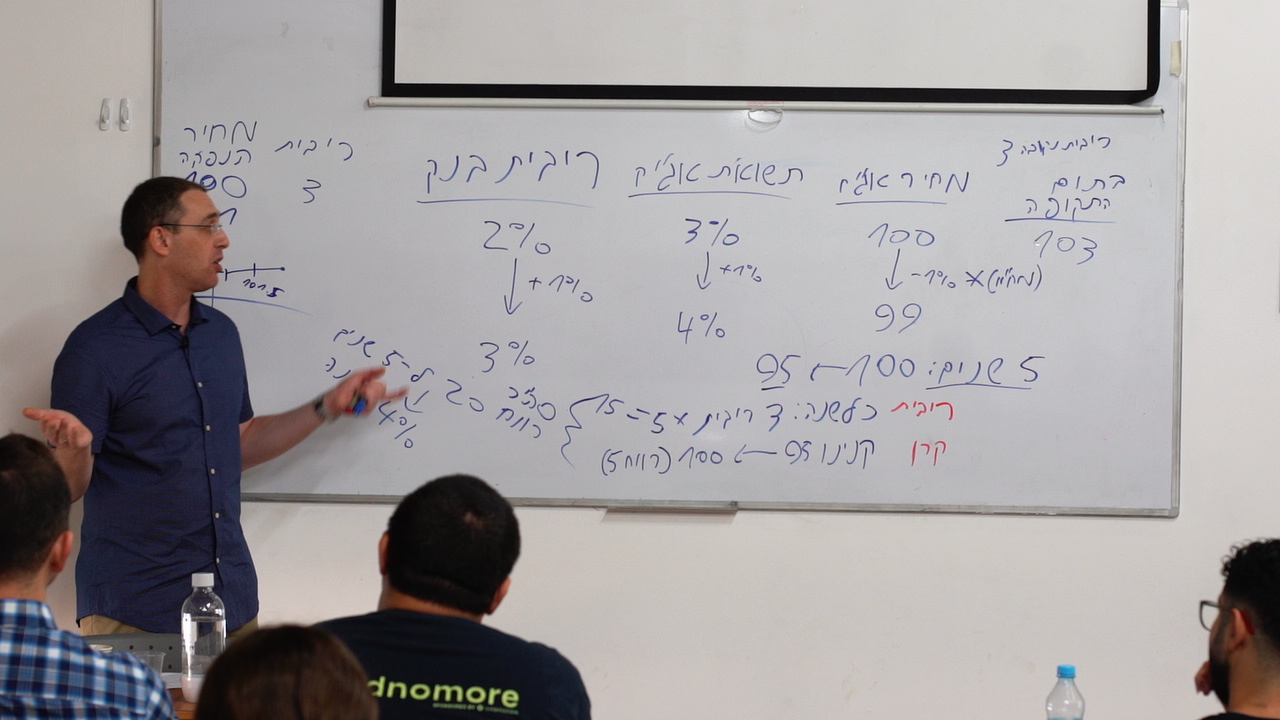 ריבית נקובה 3
בתום
התקופה
103
מחיר אג״ח
100
-1% *(מח״מ)
99
תשואת אג״ח
3%
+1%
4%
ריבית בנק
2%
+1%
3%
ריבית
3
מחיר
הנפקה
100
101.5
5 שנים: 100 ← 95
ריבית כל שנה: 3 ריבית * 5 = 15
קרן קנינו 95 ← 100 (רווח 5)
סה״כ 20
רווח
ל-5 שנים
4%
dnomore
SPONSORED BY